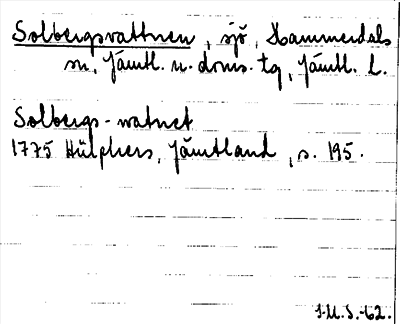 Solbergsvattnen, sjö, Hammerdals
sn, Jämtl. n. doms. tg, Jämtl. l.
Solbergs-watnet
1775 Hülphers, Jämtland, s. 195.
I.M.S.-62.